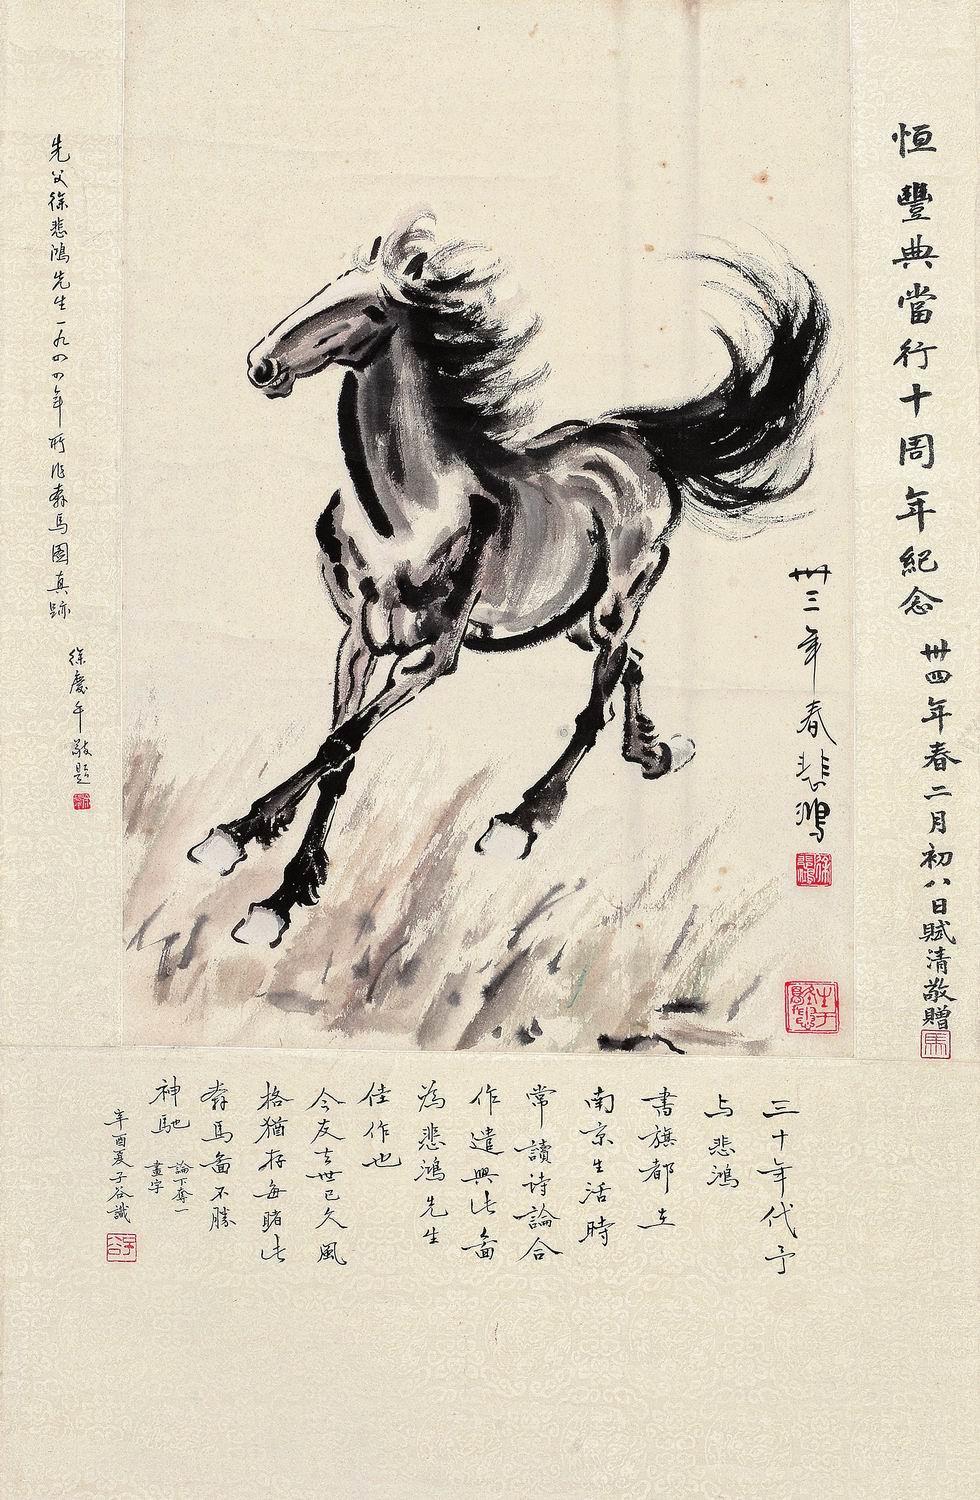 恒豐典當行十周年紀念
卅四年春二月初八日賦清敬贈
卅三年春悲鴻
三十年代予
与悲鴻
書旗都在
南京生活時
常讀詩論合
作遣興此畣
為悲鴻先生
佳作也
今友去世已久風
格猶存每睹此
奔馬畣不勝
神馳
論下奪一
畫字
辛酉夏子谷識
先父徐悲鴻先生一九四四年所作奔馬圖真跡
徐慶平敬題